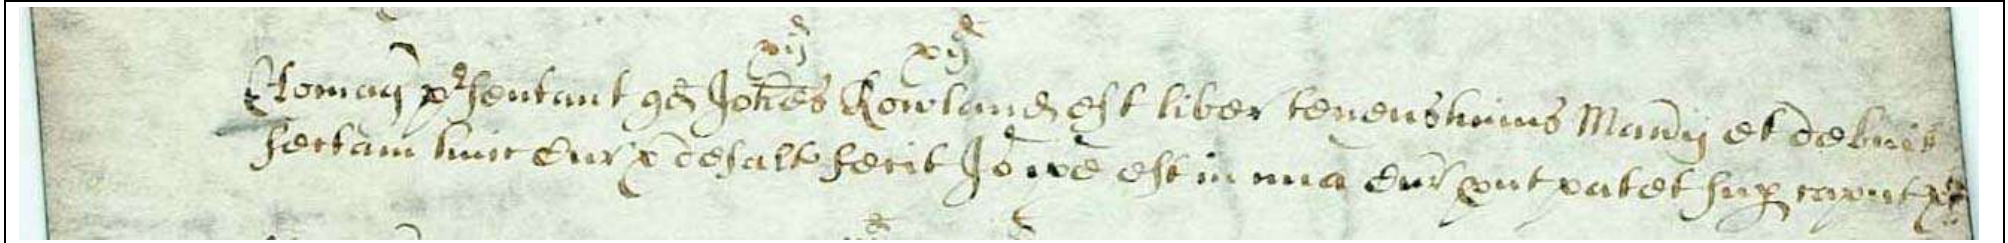 xijd xijd
Homag p'sentant qd Johes Rowland est liber tenens huius Manij et debuit
sectam huic Cur & defalt fecit Io ipe est in mia Cur put patet sup caput